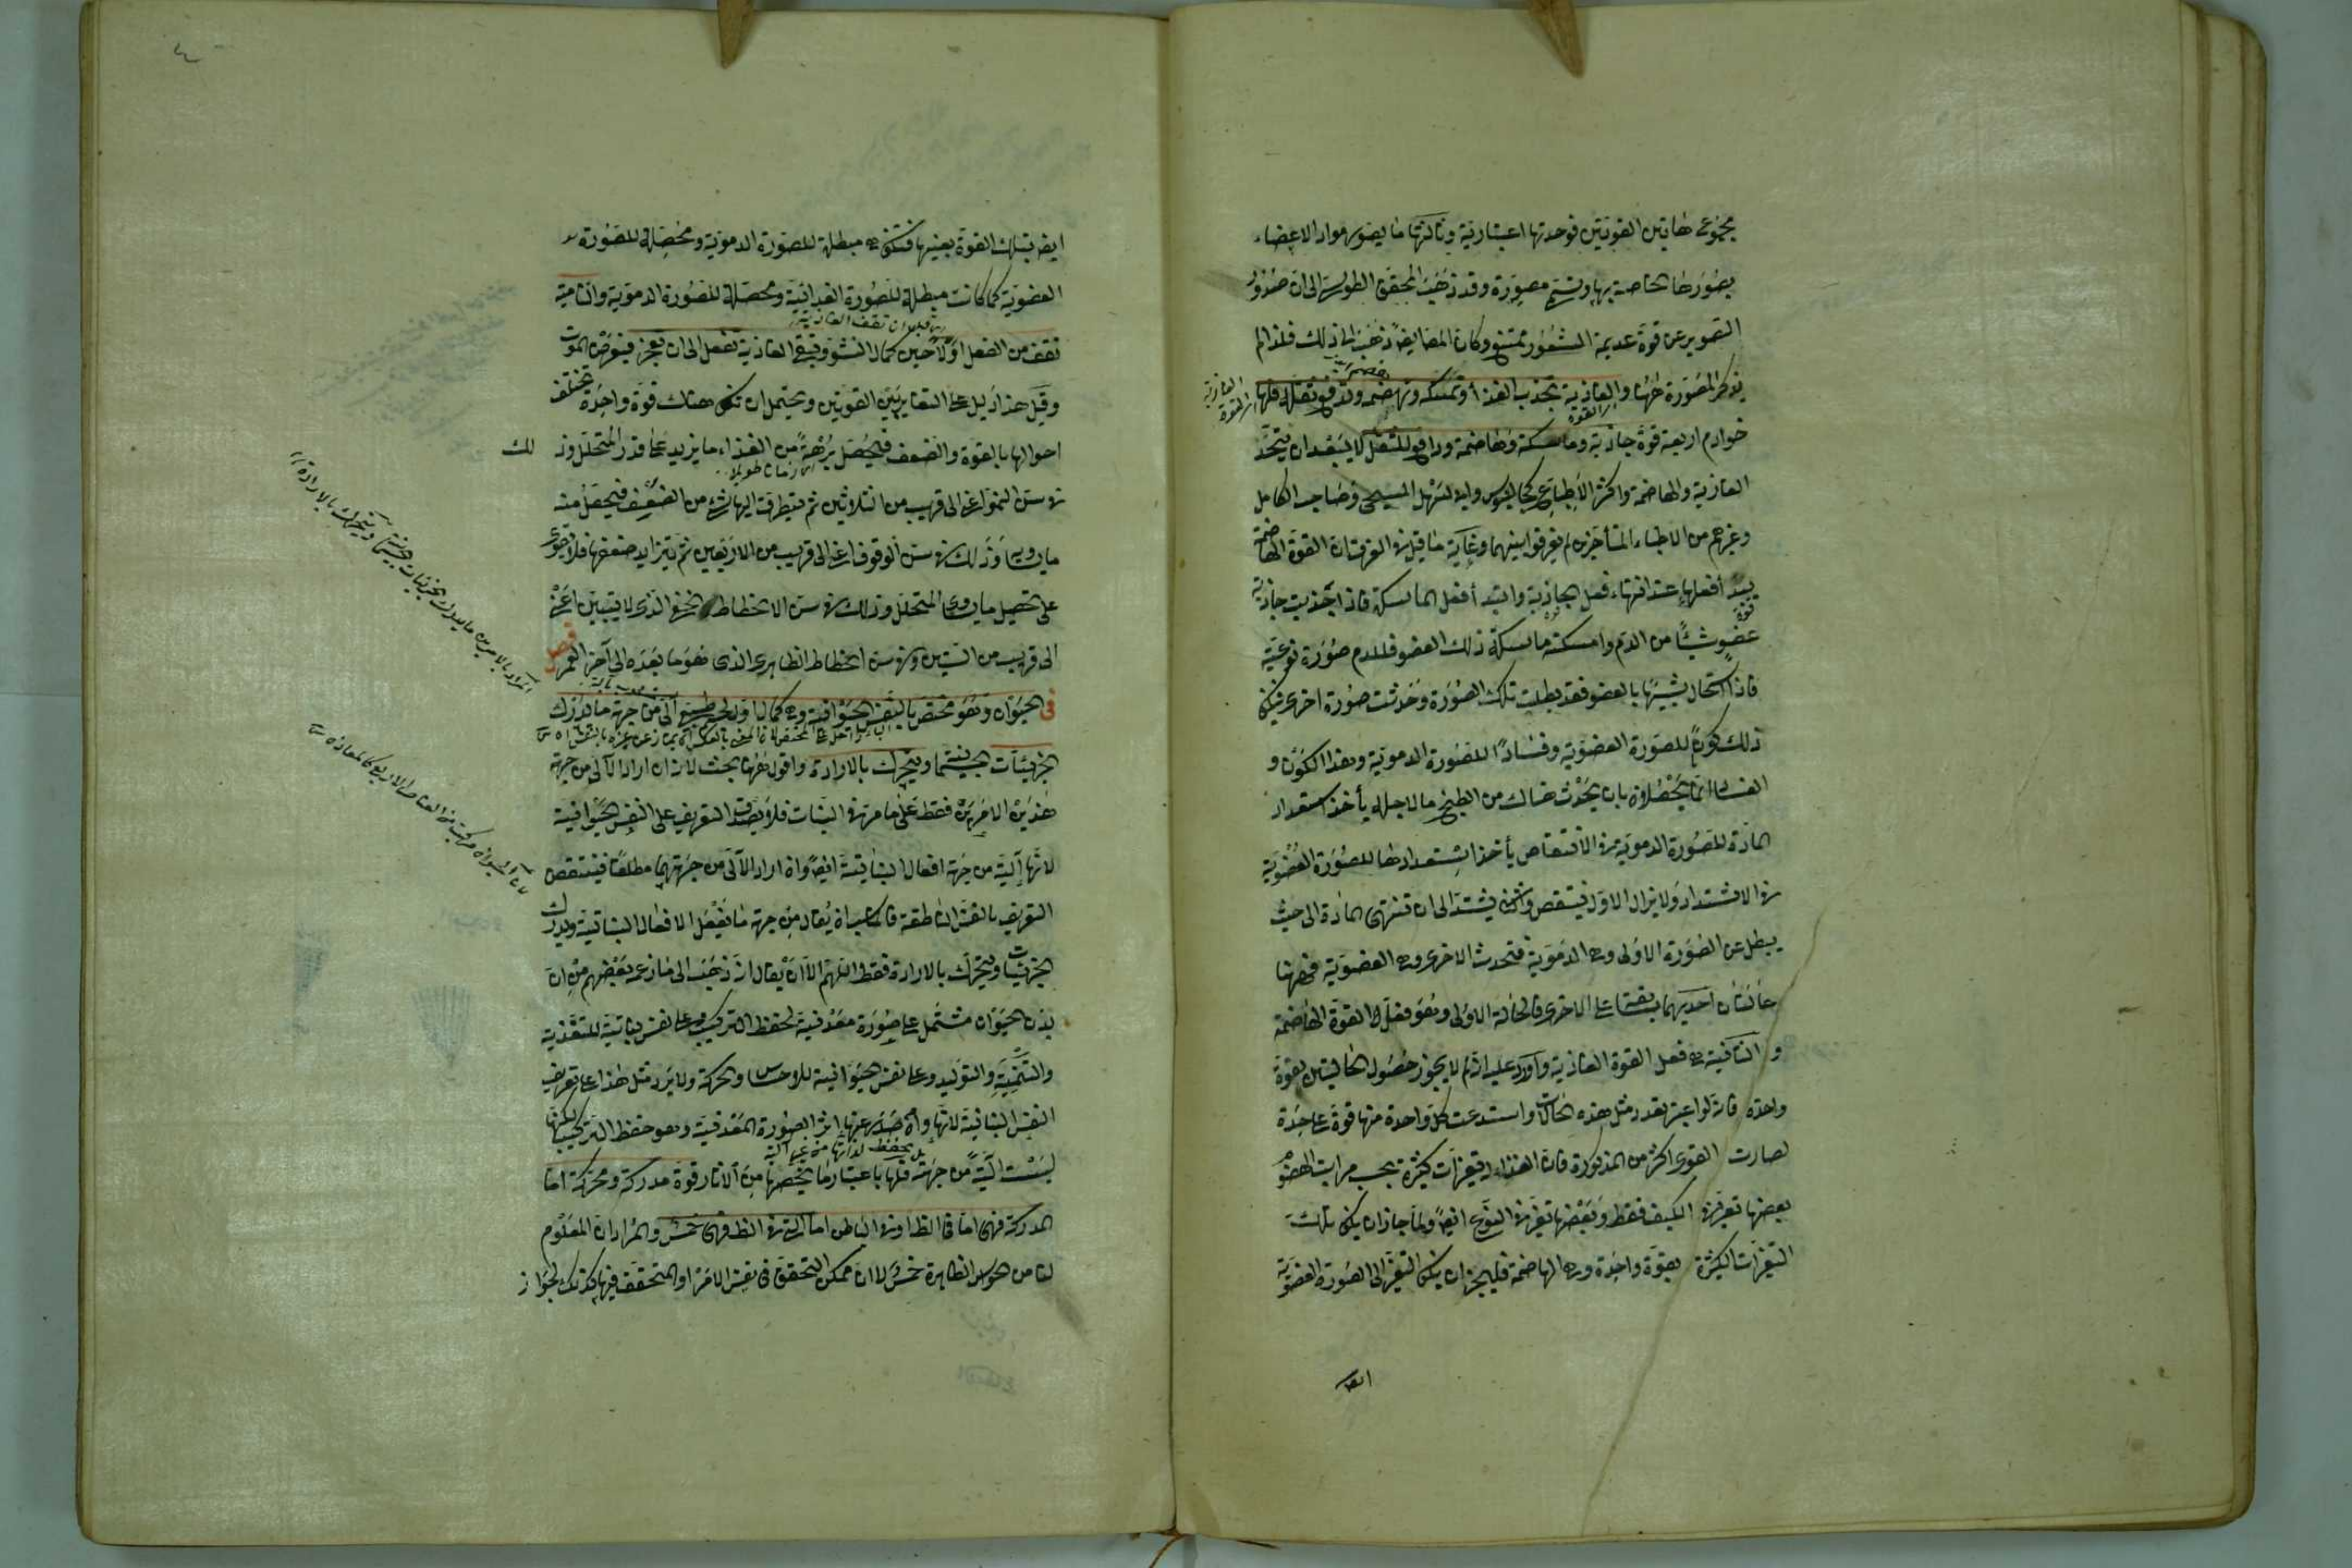 مجموع هاتين القوتين فوحدتها اعتبارية وثالثتها ما يصور مواد الاعضاء
بصورها الخاصة بها وتسمى مصورة وقد ذهب المحقق الطوسي الى ان صدور
التصوير عن قوة عديمة الشعور ممتنع وكان المص ايضا ذهب الى ذلك فلذا لم
يذكر المصورة ههنا والغاذية تجذب الغذاء وتمسكه وتهضمه وتدفع ثفله فلها
خوادم اربعة قوة جاذبة وماسكة وهاضمة ودافع للثفل لا يبعد ان يتحد
الغاذية والهاضمة واكثر الاطباء كجالينوس وابي سهل المسيحي وصاحب الكامل
وغيرهم من الاطباء المتأخرين لم يفرقوا بينهما وغاية ما قيل في الفرق ان القوة الهاضمة
يبتدأ فعلها عند انتهاء فعل الجاذبة وابتدأ فعل الماسكة فاذا جذبت جاذبة
عضو شيئا من الدم وامسكته ماسكة ذلك العضو فللدم صورة نوعية
فاذا استحال شبيها بالعضو فقد بطلت تلك الصورة وحدثت صورة اخرى فيكون
ذلك كونا للصورة العضوية وفسادا للصورة الدموية وهذا الكون و
الفساد انما يحصلان بان يحدث هناك من الطبخ ما لاجله يأخذ استعداد
المادة للصورة الدموية في الانتقاص يأخذ استعدادها للصورة العضوية
في الاشتداد ولا يزال الاول ينتقص والثاني يشتد الى ان تنتهي المادة الى حيث
يبطل عن الصورة الاولى وهي الدموية فتحدث الاخرى وهي العضوية فههنا
حالتان احديهما سابقة على الاخرى فالحالة الاولى وهو فعل القوة الهاضمة
والثانية هي فعل القوة الغاذية واورد عليه انه لم لا يجوز حصول الحالتين بقوة
واحدة فانه لو اعتبر تعدد مثل هذه الحالات واستدعت كل واحدة منها قوة على حدة
لصارت القوى اكثر من المذكورة فان الغذاء له تغيرات كثيرة بحسب مراتب الهضم
بعضها تغير في الكيف فقط وبعضها تغير في النوع ايضا ولما جاز ان يكون تلك
التغيرات الكثيرة بقوة واحدة وهي الهاضمة فليجز ان يكون التغير الى الصورة العضوية
ايضا
ايضا بتلك القوة بعينها فتكون هي مبطلة للصورة الدموية ومحصلة للصورة
العضوية كما كانت مبطلة للصورة الغذائية ومحصلة للصورة الدموية والنامية
تقف من الفعل اولا حين كمال النشو وتبقى الغاذية تفعل الى ان تعجز فيعرض الموت
وقيل هذا دليل على التغاير بين القوتين ويحتمل ان يكون هناك قوة واحدة تختلف
احوالها بالقوة والضعف فتحصل برهة من الغذاء ما يزيد على قدر المتحلل وذلك
في سن النمو اعني الى قريب من الثلاثين ثم يتطرق اليها شيء من الضعف فيحصل منه
ما يساويه وذلك في سن الوقوف اعني الى قريب من الاربعين ثم يتزايد ضعفها فلا تقوى
على تحصيل ما يساوي المتحلل وذلك في سن الانحطاط الخفي الذي لا يتبين اعني
الى قريب من الستين وفي سن انحطاط الظاهري الذي هو ما بعده الى آخر العمر فصل
في الحيوان وهو مختص بالنفس الحيوانية وهي كمال اول لجسم طبيعي آلي من جهة ما يدرك
الجزئيات الجسمانية ويتحرك بالارادة واقول ههنا بحث لانه ان اراد الآلي من جهة
هذين الامرين فقط على ما مر في النبات فلا يصدق التعريف على النفس الحيوانية
لانها آلية من جهة افعال النباتية ايضا وان اراد الآلي من جهتهما مطلقا فينتقض
التعريف بالنفس الناطقة فالمناسب ان يقال من جهة ما يفعل الافعال النباتية ويدرك
الجزئيات ويتحرك بالارادة فقط اللهم الا ان يقال انه ذهب الى ما زعم بعضهم من ان
بدن الحيوان مشتمل على صورة معدنية لحفظ التركيب وعلى نفس نباتية للتغذية
والتنمية والتوليد وعلى نفس حيوانية للاحساس والحركة ولا يرد مثل هذا على تعريف
النفس النباتية لانها وان صدر عنها اثر الصورة المعدنية وهو حفظ التركيب لكنها
ليست آلية من جهته فلها باعتبار ما يخصها من الآثار قوة مدركة ومحركة اما
المدركة فهي اما في الظاهر او في الباطن اما التي في الظاهر فهي خمس والمراد ان المعلوم
لنا من الحواس الظاهرة خمس لا ان ممكن التحقق في نفس الامر او المتحقق فيها كذلك لجواز